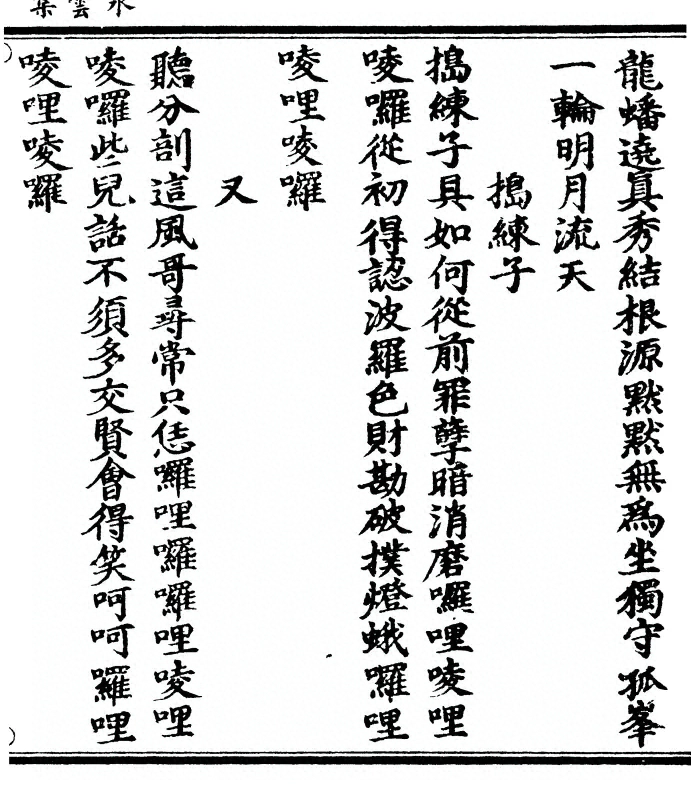 水雲集
龍蟠遶真秀結根源黙黙無爲坐獨守孤峯
一輪明月流天
搗練子
搗練子具如何從前罪孽暗消磨囉哩唛哩
唛囉從初得認波羅色財勘破撲燈蛾囉哩
唛哩唛囉
又
聽分剖這風哥尋常只恁囉哩囉囉哩唛哩
唛囉些兒話不須多交賢會得笑呵呵囉哩
唛哩唛囉